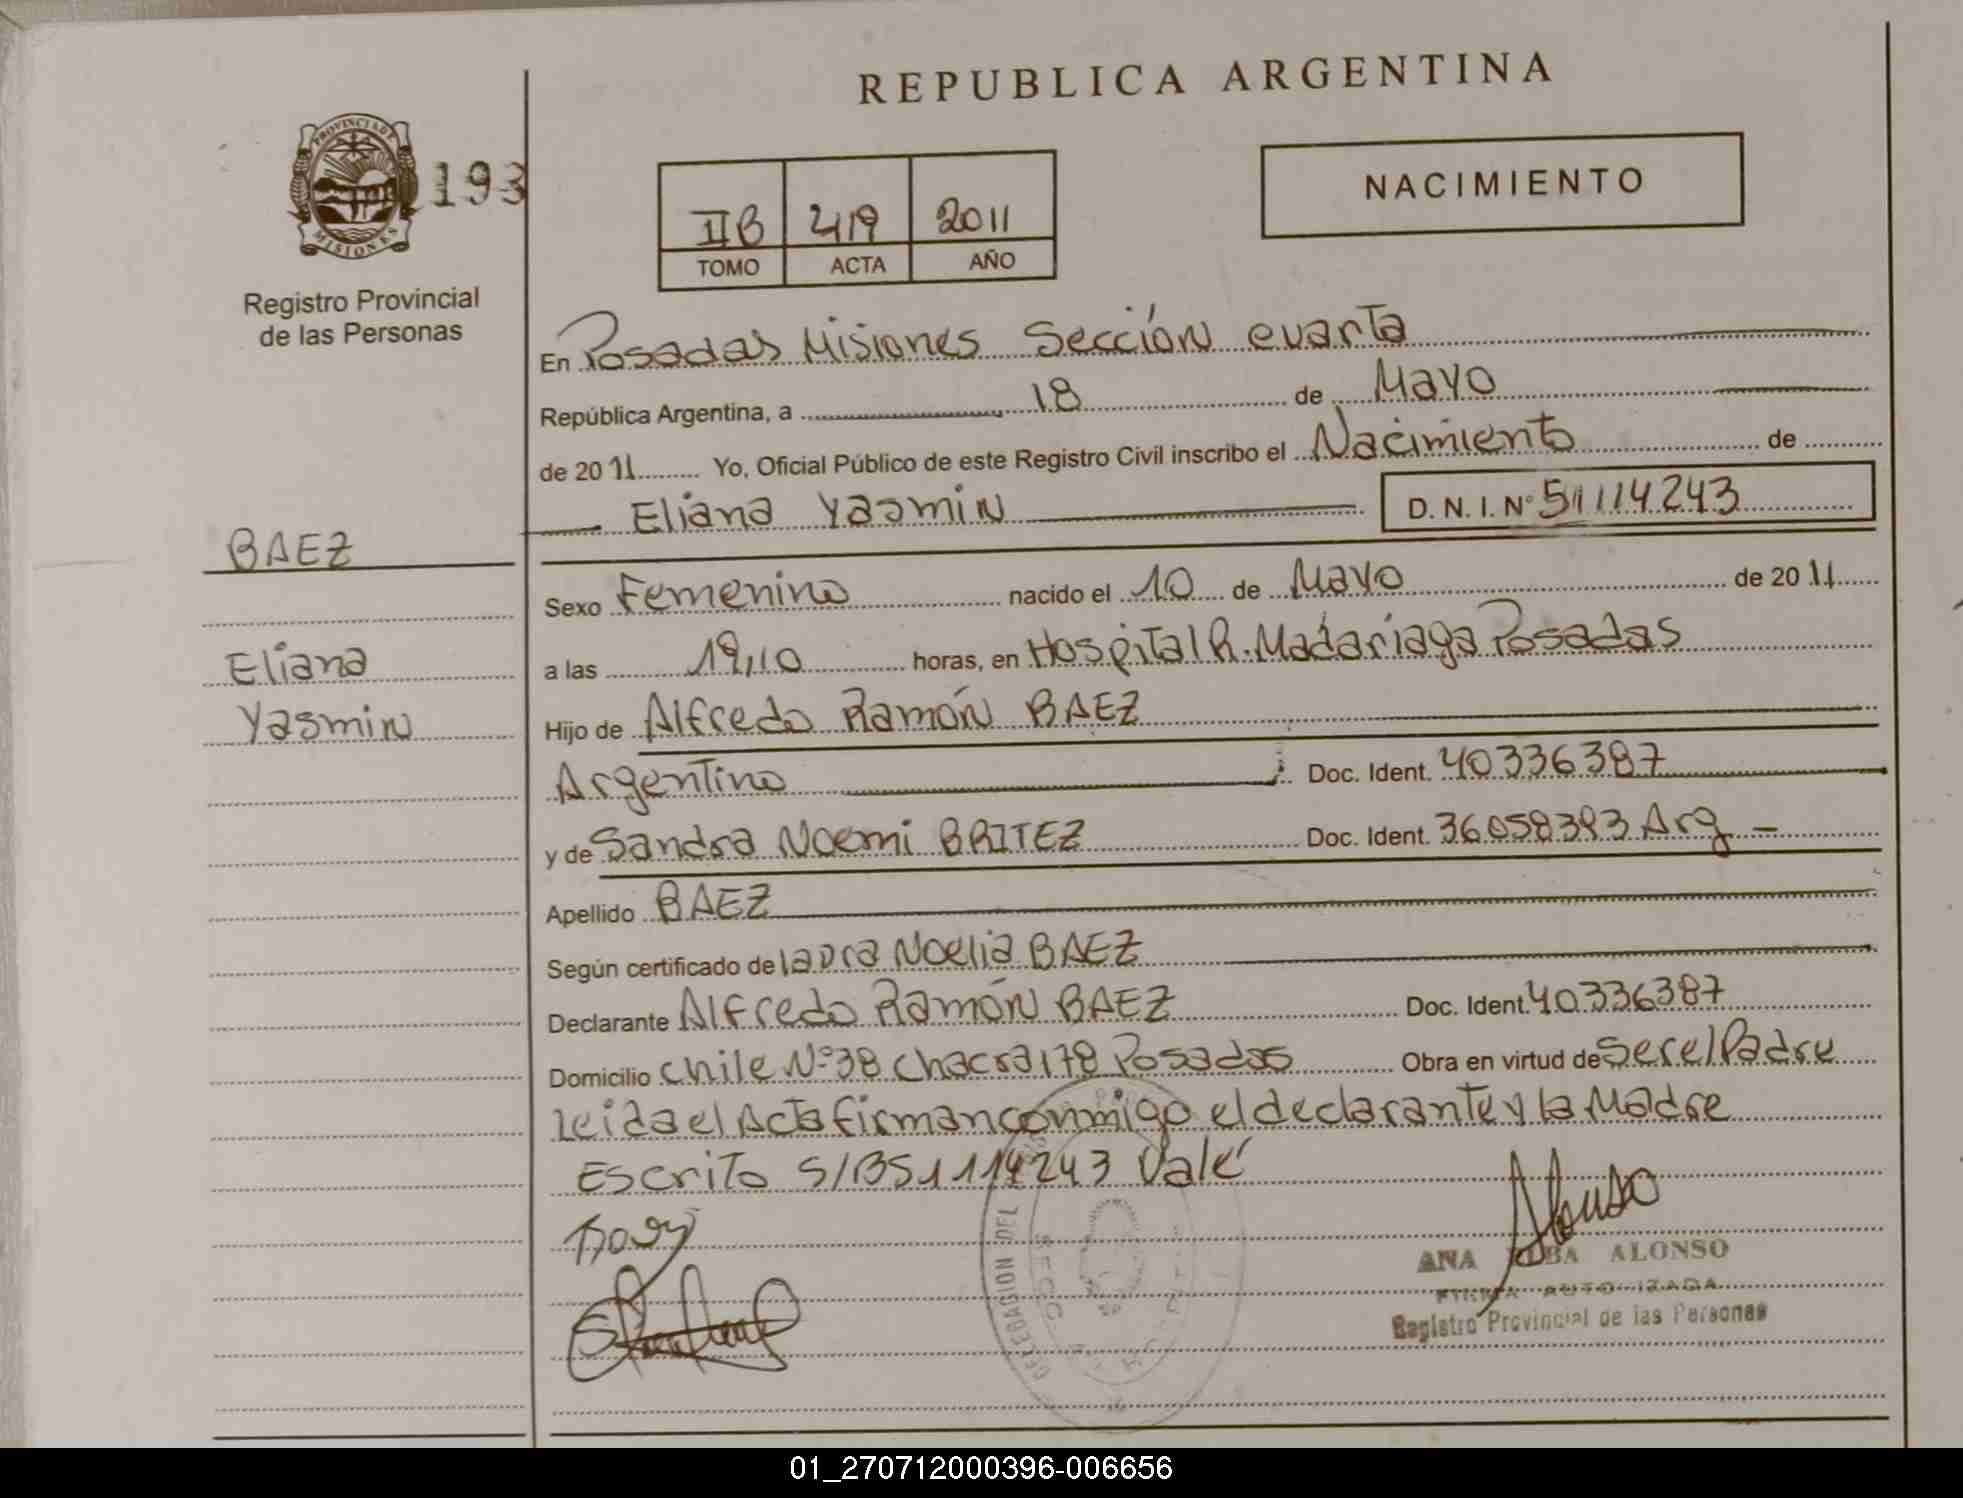 REPUBLICA ARGENTINA
PROVINCIA DE
MISIONES
193
Registro Provincial
de las Personas
NACIMIENTO
IIB 419 2011
TOMO ACTA AÑO
En Posadas Misiones Sección cuarta
República Argentina, a 18 de Mayo
de 2011 Yo, Oficial Público de este Registro Civil inscribo el Nacimiento de
Eliana Yasmin D.N.I. Nº 51114243
BAEZ
Eliana
Yasmin
Sexo Femenino nacido el 10 de Mayo de 2011
a las 19,10 horas, en Hospital R. Madariaga Posadas
Hijo de Alfredo Ramón BAEZ
Argentino Doc. Ident. 40336387
y de Sandra Noemi BRITEZ Doc. Ident. 36058393 Arg
Apellido BAEZ
Según certificado de laura Noelia BAEZ
Declarante Alfredo Ramón BAEZ Doc. Ident. 40336387
Domicilio Chile Nº 38 Chacra 178 Posadas Obra en virtud de Ser el Padre
Leida el Acta firman conmigo el declarante y la Madre
Escrito S/B 51114243 Vale
Alonso
ANA ALBA ALONSO
FIRMA AUTORIZADA
Registro Provincial de las Personas
DELEGACION DEL
SECC.
01_270712000396-006656